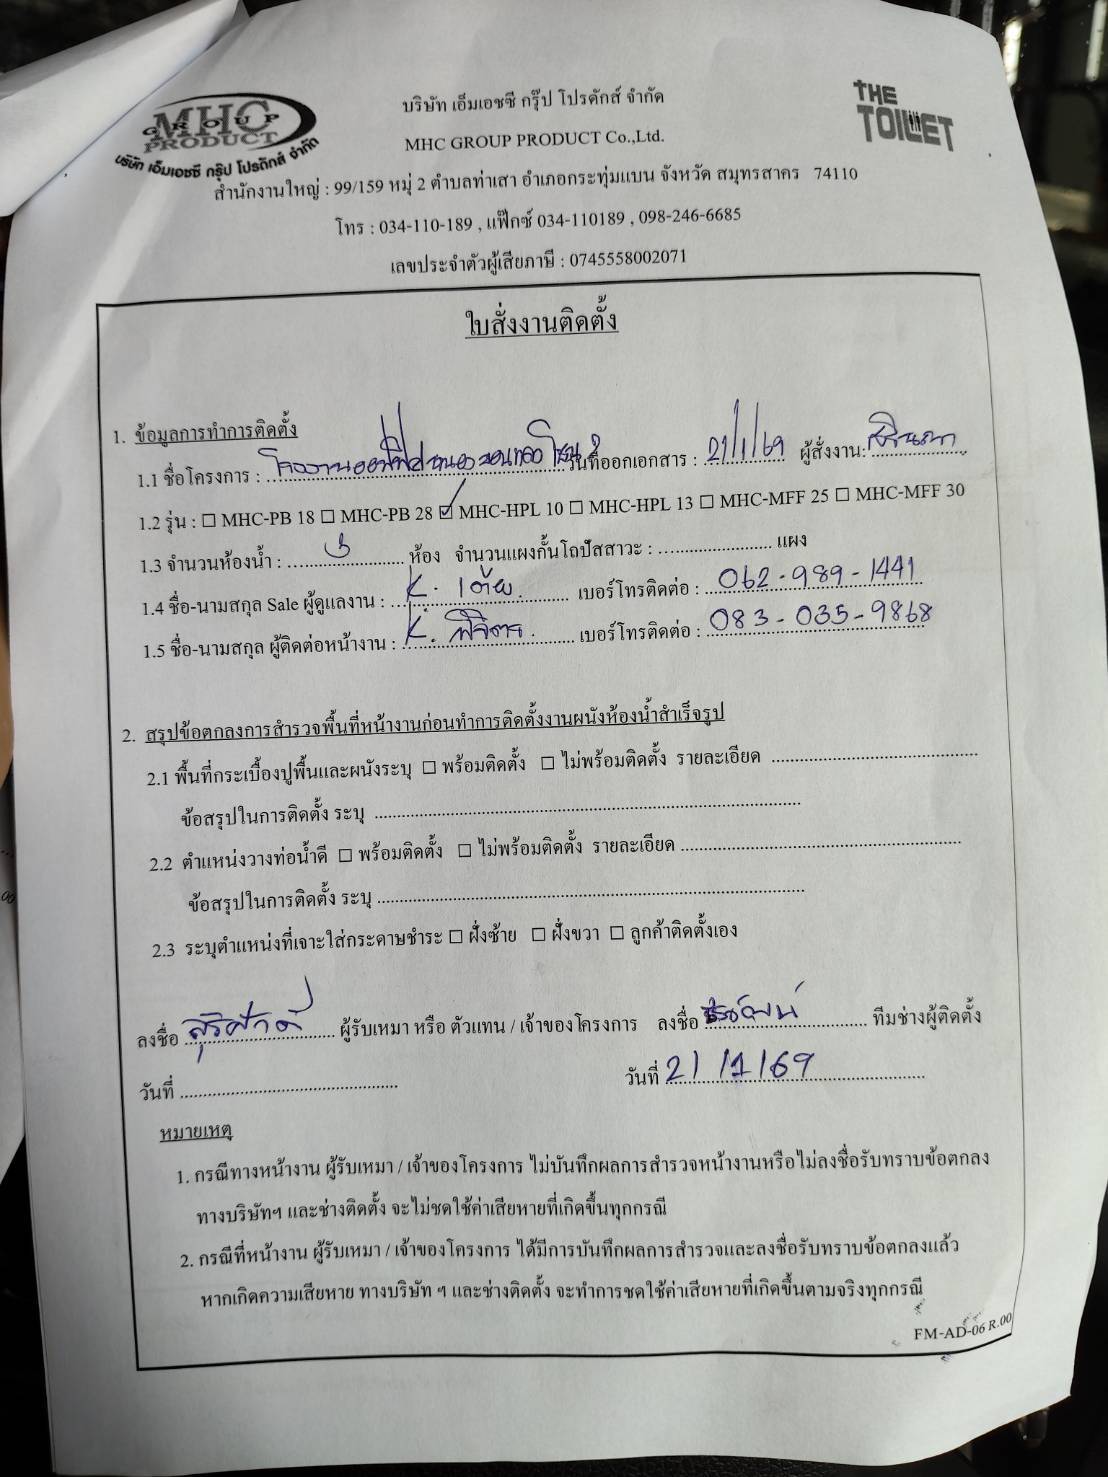 MHC
GROUP
PRODUCT
บริษัท เอ็มเอชซี กรุ๊ป โปรดักส์ จำกัด
THE
TOILET
บริษัท เอ็มเอชซี กรุ๊ป โปรดักส์ จำกัด
MHC GROUP PRODUCT Co.,Ltd.
สำนักงานใหญ่ : 99/159 หมู่ 2 ตำบลท่าเสา อำเภอกระทุ่มแบน จังหวัด สมุทรสาคร 74110
โทร : 034-110-189 , แฟ็กซ์ 034-110189 , 098-246-6685
เลขประจำตัวผู้เสียภาษี : 0745558002071
ใบสั่งงานติดตั้ง
1. ข้อมูลการทำการติดตั้ง
1.1 ชื่อโครงการ : วันที่ออกเอกสาร : 21/1/69 ผู้สั่งงาน:
1.2 รุ่น : ☐ MHC-PB 18 ☐ MHC-PB 28 ☑ MHC-HPL 10 ☐ MHC-HPL 13 ☐ MHC-MFF 25 ☐ MHC-MFF 30
1.3 จำนวนห้องน้ำ : ห้อง จำนวนแผงกั้นโถปัสสาวะ : แผง
1.4 ชื่อ-นามสกุล Sale ผู้ดูแลงาน : K. เต้ย เบอร์โทรติดต่อ : 062-989-1441
1.5 ชื่อ-นามสกุล ผู้ติดต่อหน้างาน : K. พิจิตร เบอร์โทรติดต่อ : 083-035-9868
2. สรุปข้อตกลงการสำรวจพื้นที่หน้างานก่อนทำการติดตั้งงานผนังห้องน้ำสำเร็จรูป
2.1 พื้นที่กระเบื้องปูพื้นและผนังระบุ ☐ พร้อมติดตั้ง ☐ ไม่พร้อมติดตั้ง รายละเอียด
ข้อสรุปในการติดตั้ง ระบุ
2.2 ตำแหน่งวางท่อน้ำดี ☐ พร้อมติดตั้ง ☐ ไม่พร้อมติดตั้ง รายละเอียด
ข้อสรุปในการติดตั้ง ระบุ
2.3 ระบุตำแหน่งที่เจาะใส่กระดาษชำระ ☐ ฝั่งซ้าย ☐ ฝั่งขวา ☐ ลูกค้าติดตั้งเอง
ลงชื่อ สุริศักดิ์ ผู้รับเหมา หรือ ตัวแทน / เจ้าของโครงการ ลงชื่อ ทีมช่างผู้ติดตั้ง
วันที่ วันที่ 21/1/69
หมายเหตุ
1. กรณีทางหน้างาน ผู้รับเหมา / เจ้าของโครงการ ไม่บันทึกผลการสำรวจหน้างานหรือไม่ลงชื่อรับทราบข้อตกลง
ทางบริษัทฯ และช่างติดตั้ง จะไม่ชดใช้ค่าเสียหายที่เกิดขึ้นทุกกรณี
2. กรณีที่หน้างาน ผู้รับเหมา / เจ้าของโครงการ ได้มีการบันทึกผลการสำรวจและลงชื่อรับทราบข้อตกลงแล้ว
หากเกิดความเสียหาย ทางบริษัท ฯ และช่างติดตั้ง จะทำการชดใช้ค่าเสียหายที่เกิดขึ้นตามจริงทุกกรณี
FM-AD-06 R.00